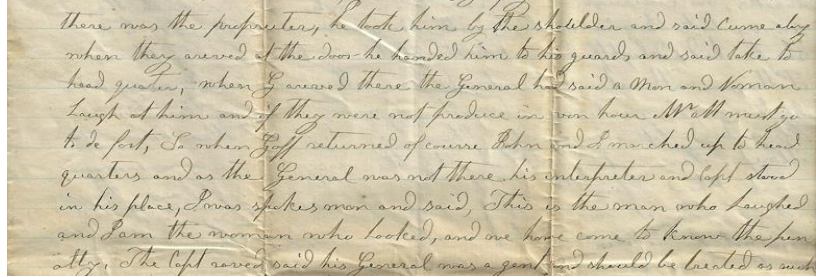 there was the propriter, he took him by the shoulder and said cume alog
when they arived at the door he handed him to his guards and said take to
head quater, when G arived there the General had said a Man and Woman
Laugh at him and if they were not produce in von hour Mr must go
to de fort, So when Goff returned of course John and I marched up to head
quarters and as the General was not there his interpreter and Capt stood
in his place, I was spokes man and said, This is the man who laughed
and I am the woman who looked, and we have come to know the pen
alty, The Capt raved said his General was a gent and should be treated as such